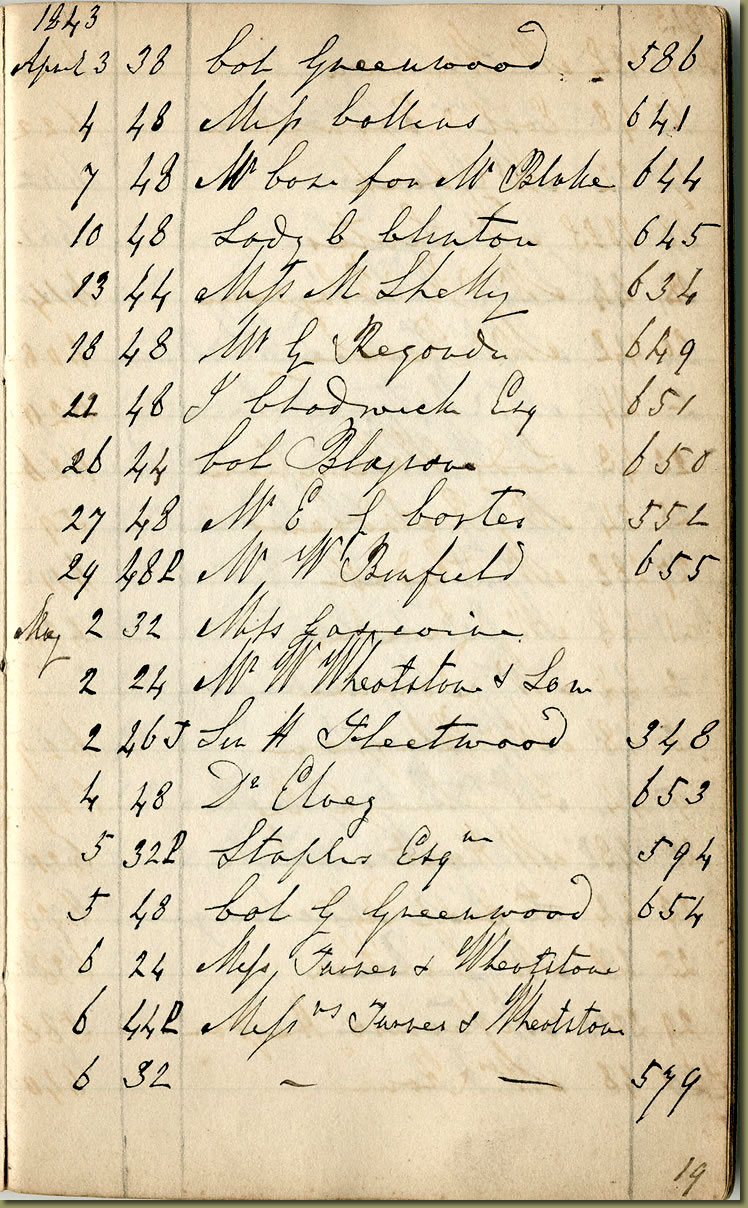 1843
April 3 38 Col Greenwood 586
4 48 Miss Collins 641
7 48 Mr Case for Mr Blake 644
10 48 Lady C Clinton 645
13 44 Miss M Shelly 634
18 48 Mr G Regondi 649
21 48 J Chadwick Esq 651
26 44 Col Blagrave 650
27 48 Mr E J Carter 552
29 48P Mr W Binfield 655
May 2 32 Miss
2 24 Mr W Wheatstone & Son
2 26 Sir H Fleetwood 348
4 48 Dr Elvey 653
5 32P Staples Esqre 594
5 48 Col G Greenwood 654
6 24 Mess Turner & Wheatstone
6 44P Messrs Turner & Wheatstone
6 32 — — 579
19